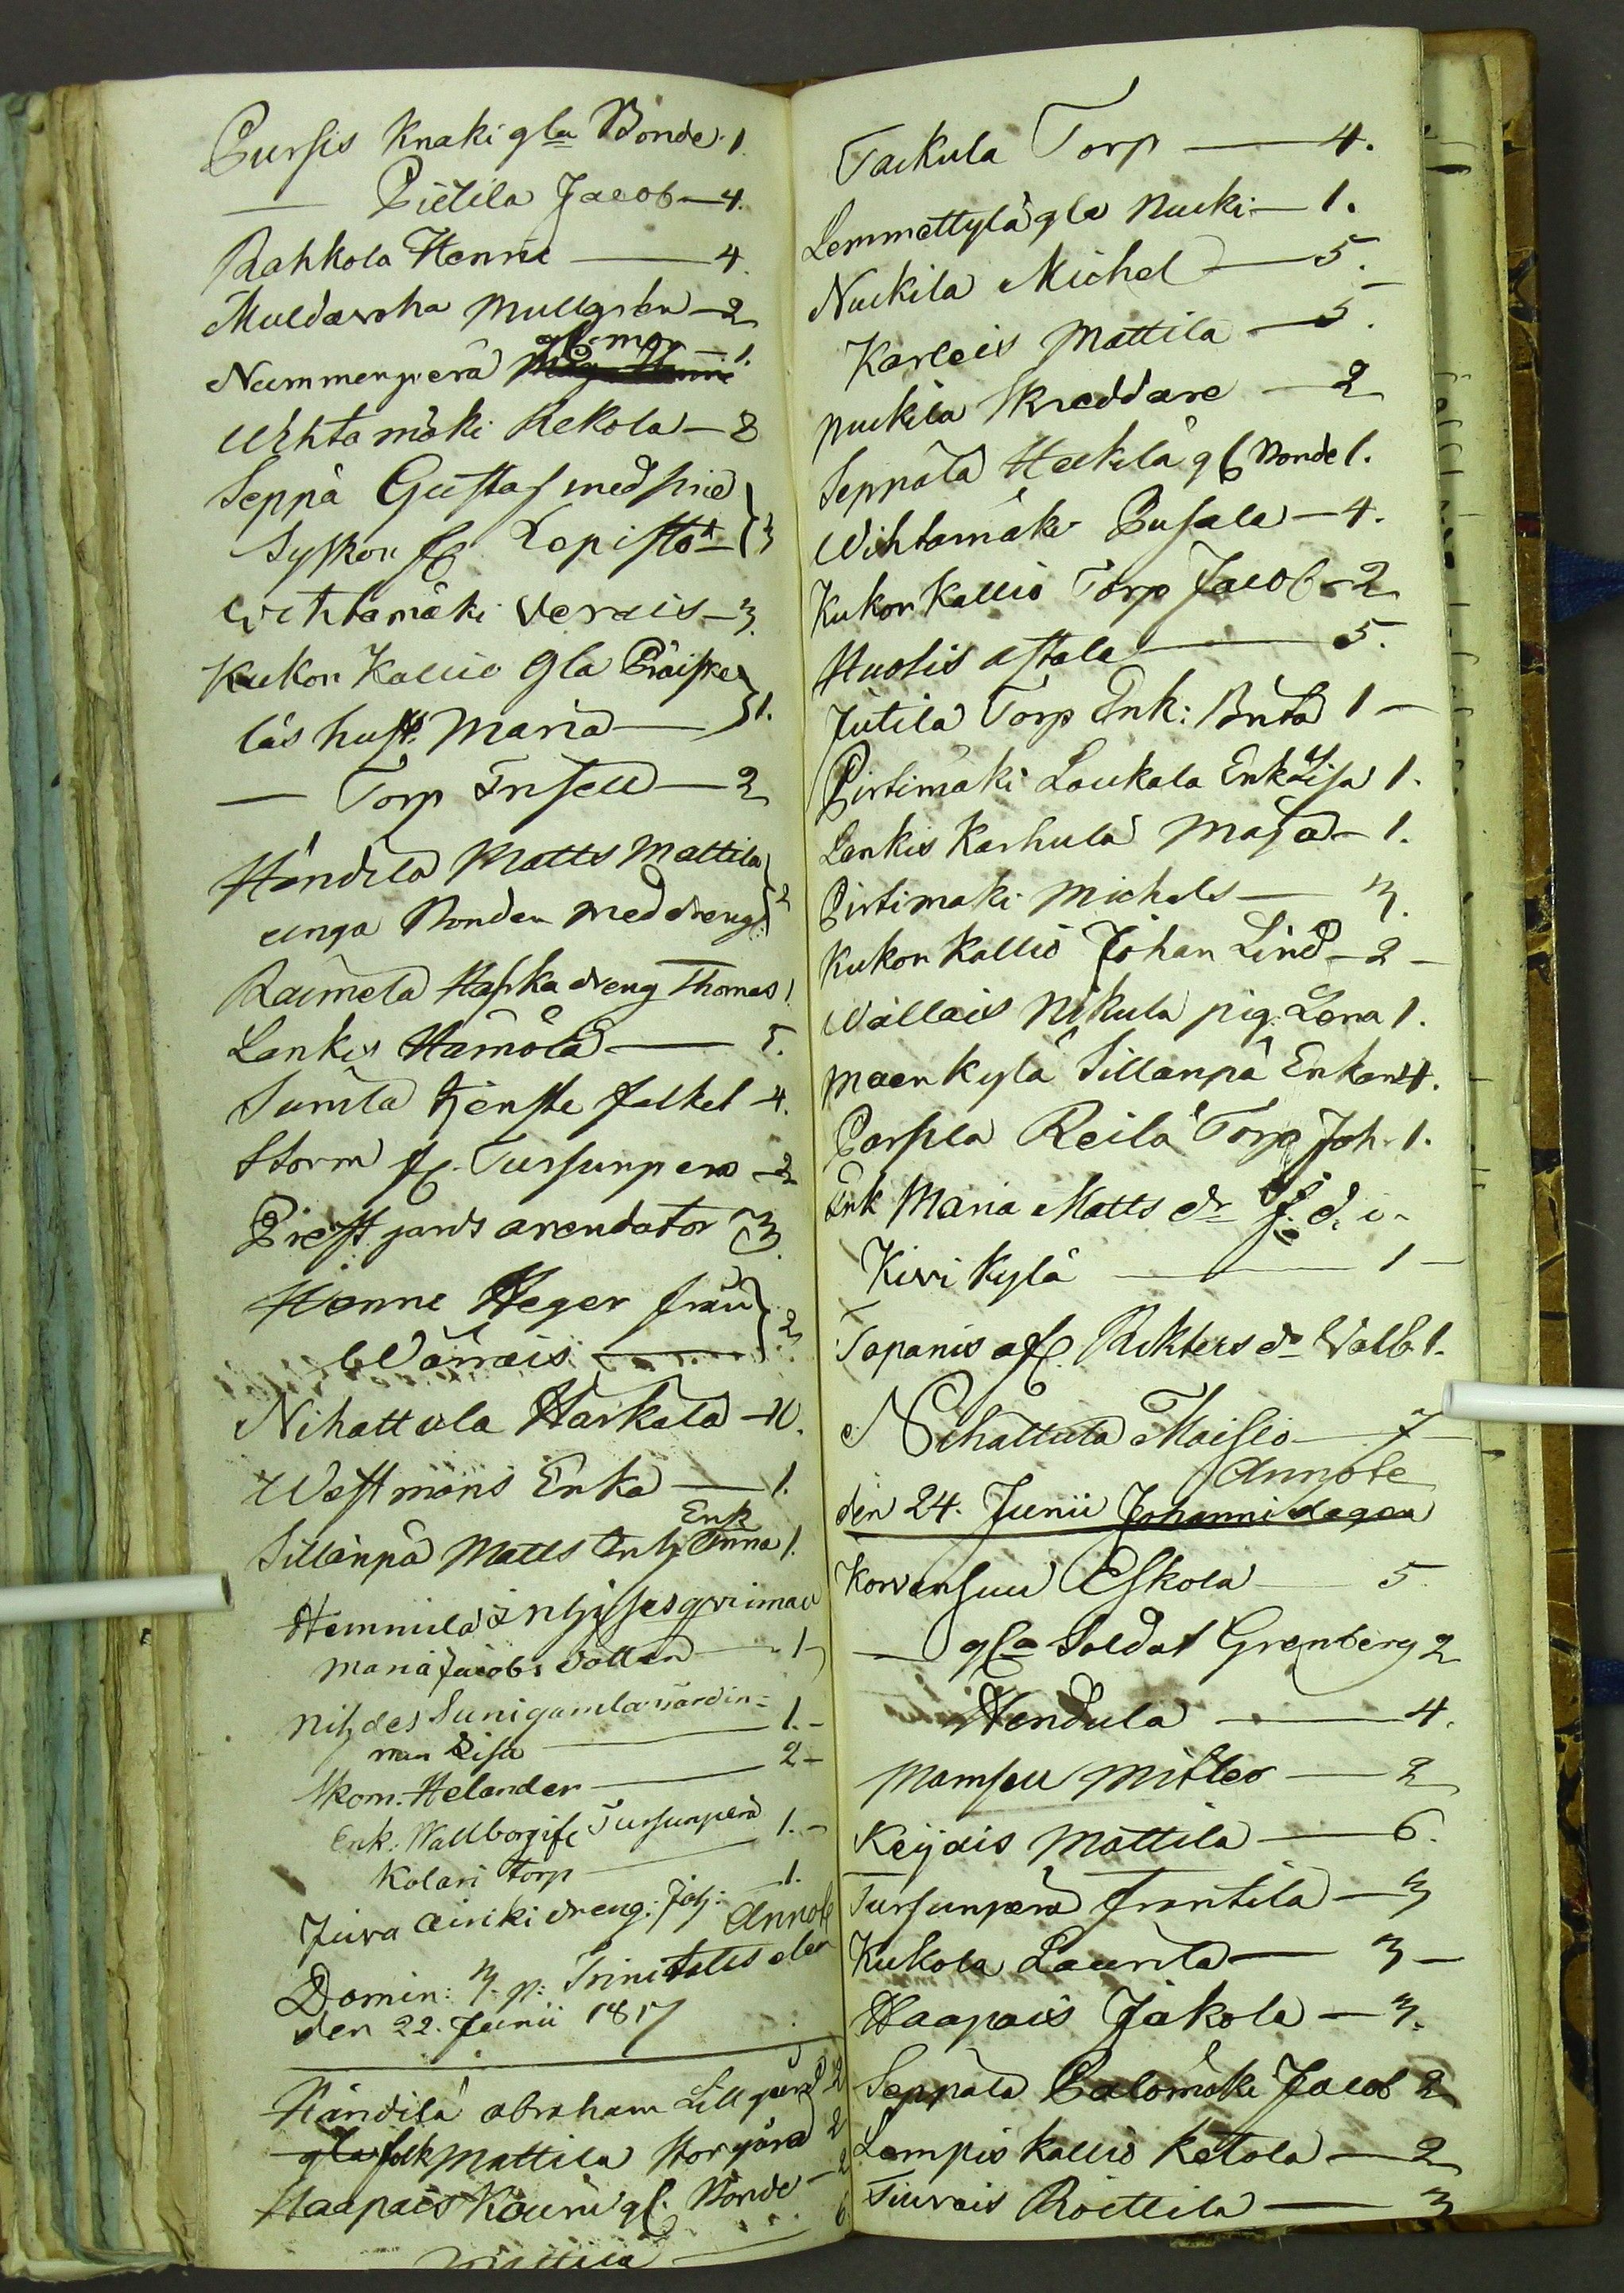 Pursis Knaki gla Bonde 1.
— Pietila Jacob — 4.
Rahkola Henne — 4.
Muldarvha Mullgrén — 2
gl. mor — 1.
Nummenperä
Wihtamäki Rekola — 8
Seppä Gustaf med sine
Syskon fr. Lepistö — 3
Wihtamäki Verais — 3.
Kukon Kallio Gla Präiske
läs hust. Maria — 1.
— Torp Insell — 2
Händilä Matts Mattila
unga Bonden med dreng 2
Raimela Haska dreng Thomas 1.
Lankis Hamola — 5.
Sunila tjenste folket — 4.
Storm fr. Tursunpera — 2
Prest gards arendator 3.
Henne Heger från
Wärrais — 2
Nihattula Harkala — 10.
Westmans Enka — 1.
Enk
Sillänpä Matts Enk Anna 1.
Hemmilä Inhyses qvinnan
Maria Jacobs dotter — 1
Nih des Suni gamla värdin=
nan Lisa — 1. —
Skom. Helander — 2 —
Enk. Wallborg ifr Tursunperä
Kolari torp — 1. —
Juva Airiki dreng. Joh: — 1.
Annote
Domin: 3. p: Trinitatis den
den 22. Junii 1817
Händilä Abraham Lillgård 2
gla folk Mattila Storgård 2
Haapais Kauni gl. Bonde — 2
Mattila — 6
Taikula Torp — 4.
Lemmettylä gla Nuki — 1.
Nuikila Michel — 5.
Karleis Mattila — 5.
Nuikila Skreddare — 2
Seppälä Heikilä gl Bonde 1.
Wihtamäki Pusala — 4.
Kukon Kallio Torp Jacob — 2
Huolis Astala — 5.
Jutila Torp Enk: Brita 1 —
Pirtimäki Laukala Enk Lisa 1.
Lankis Karhula Maja — 1.
Pirtimaki Michels — 3.
Kukon Kallio Johan Lind — 2 —
Wällais Nikula pig. Lena 1.
Maenkylä Sillanpä Enkan 4.
Porspea Reilä Torp Joh. 1.
Enk Maria Matts dr
Kivi kylä — 1 —
Tapanis af Rikters dr Valb. 1.
Nihattula Maisio — 7
Annote
den 24. Junii Johannidagen
Korvensuu Eskola — 5
— gla Soldat Grenberg 2
Hendula — 4.
Mamsell Mitler — 2
Keijais Mattila — 6.
Tursunperä Frantila — 3
Kukola Laurila — 3 —
Haapais Jakola — 3.
Seppälä Palomäki Jacob 2
Lempis Kallio Ketola — 2
Tiuvais Roittila — 3